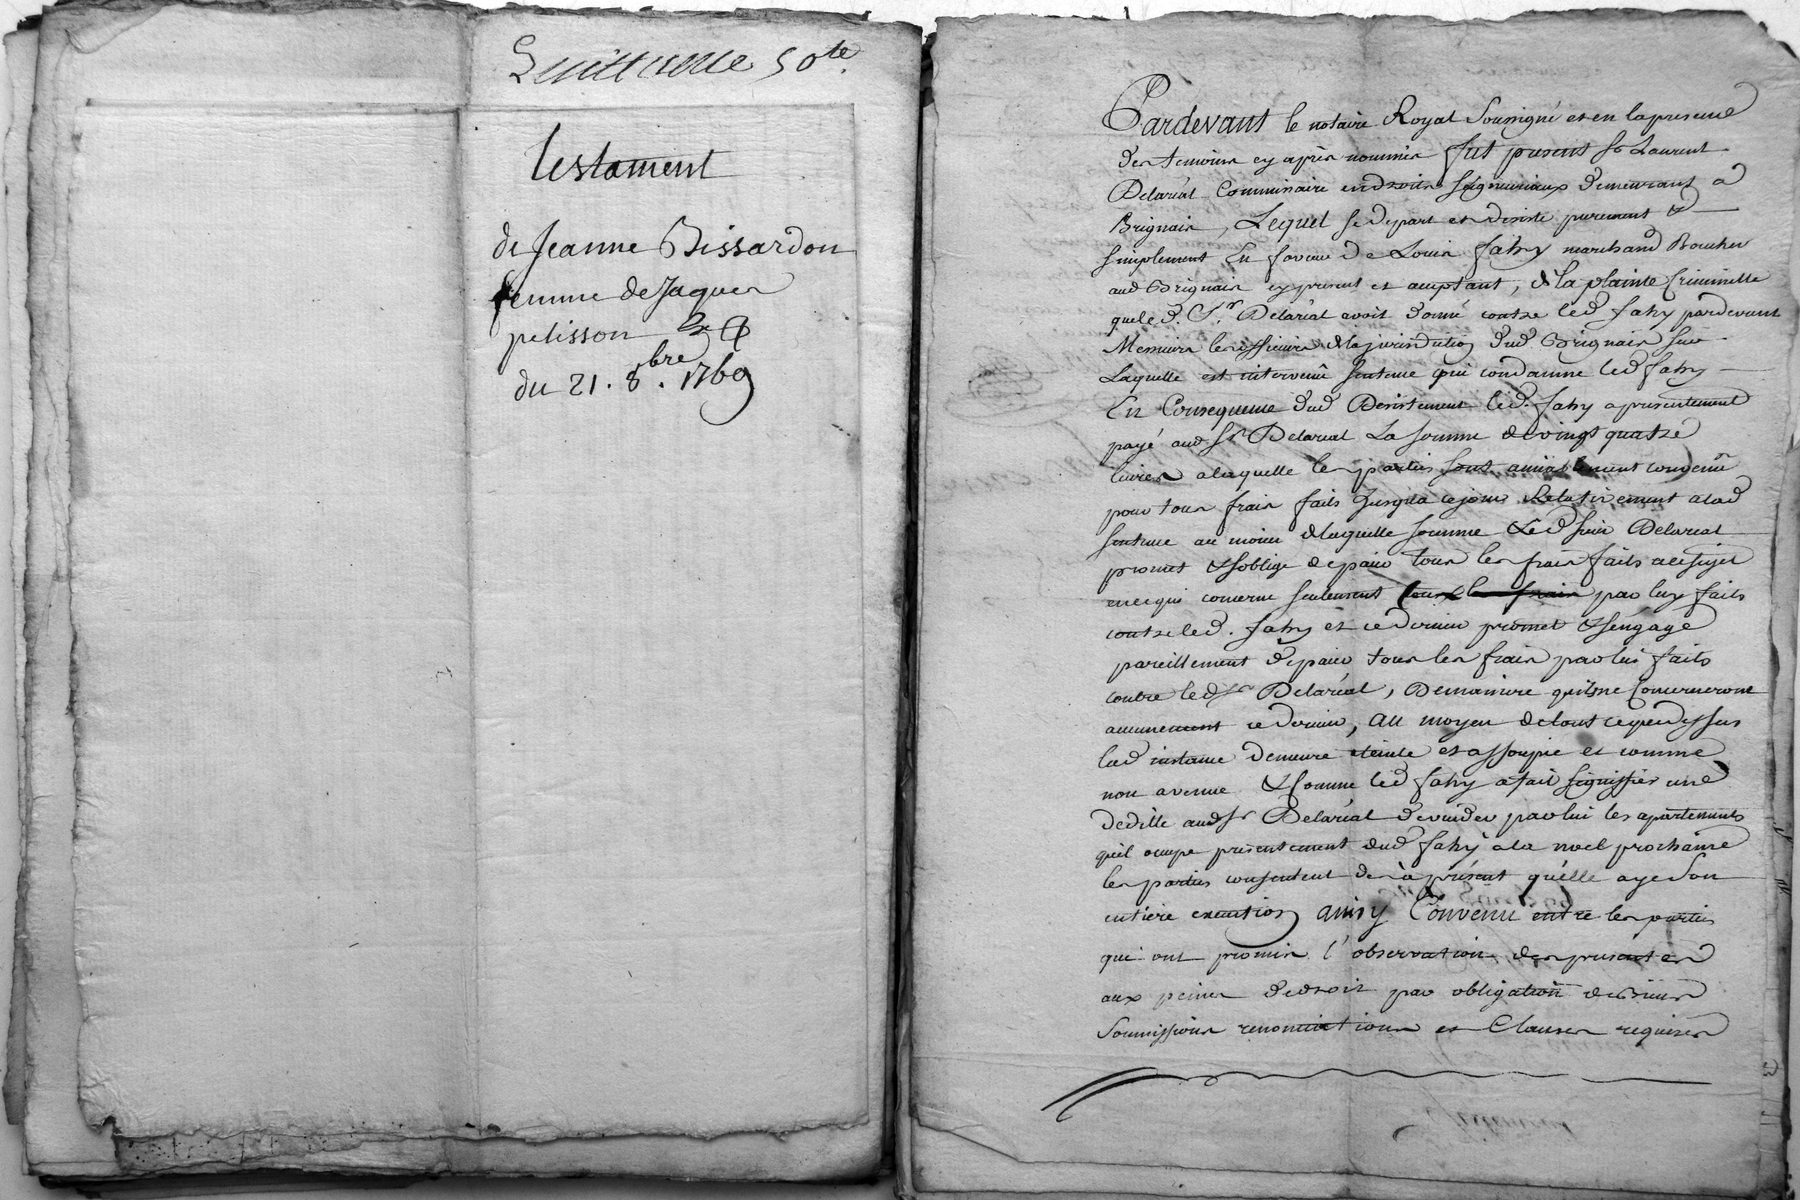 Quittance 50te.
testament
de Jeanne Bissardon
femme de Jaques
pelisson
du 21. 8bre. 1769
Pardevant le notaire Royal Soussigné et en la presence
des temoins cy après nommés fut present Sr Laurent
Delarüal Commissaire en droits seigneuriaux demeurant a
Brignais, Lequel se depart et desiste purement &
simplement En faveur de Louis fahy marchand Boucher
aud Brignais cy present et acceptant, de la plainte Criminelle
que led. Sr. Delarüal avoit donné contre led fahy pardevant
Messieurs les officiers de la jurisdiction dud Brignais sur
Laquelle est intervenüe sentence qui condamne led fahy
En Consequence dud Desistement led. fahy a presentement
payé aud Sr Delarual La somme de vingt quatre
livres a laquelle les parties sont amiablement convenu
pour tous frais faits Jusqu'a ce jour Relativement a lad
sentence au moien de laquelle somme Led sieur Delarual
promet & soblige de paier tous les frais faits a ce sujet
en ce qui concerne seulement tous les frais par luy faits
contre led. fahy et ce dernier promet & sengage
pareillement de paier tous les frais par lui faits
contre led Sr Delarüal, De maniere quils ne Concerneront
aucunement ce dernier, Au moyen de tout ce que dessus
lad instance demeure eteinte et assoupie et comme
non avenue & Comme led fahy a fait signiffier une
dedille aud Sr Delarüal de vuider par lui les apartements
quil occupe presentement dud fahy a la noel prochaine
les parties consentent des à présent qu'elle aye son
entiere execution ainsy Convenu entre les parties
qui ont promis l'observation des presentes
aux peines de droit par obligation de biens
Soumissions renonciations et Clauses requises